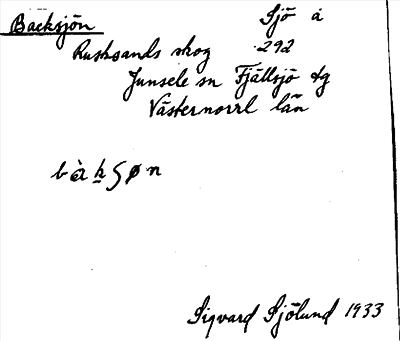 Backsjön Sjö å
Rusksands skog 292
Junsele sn Fjällsjö tg
Västernorrl län
b à k ʃ ø n
Sigvard Sjölund 1933